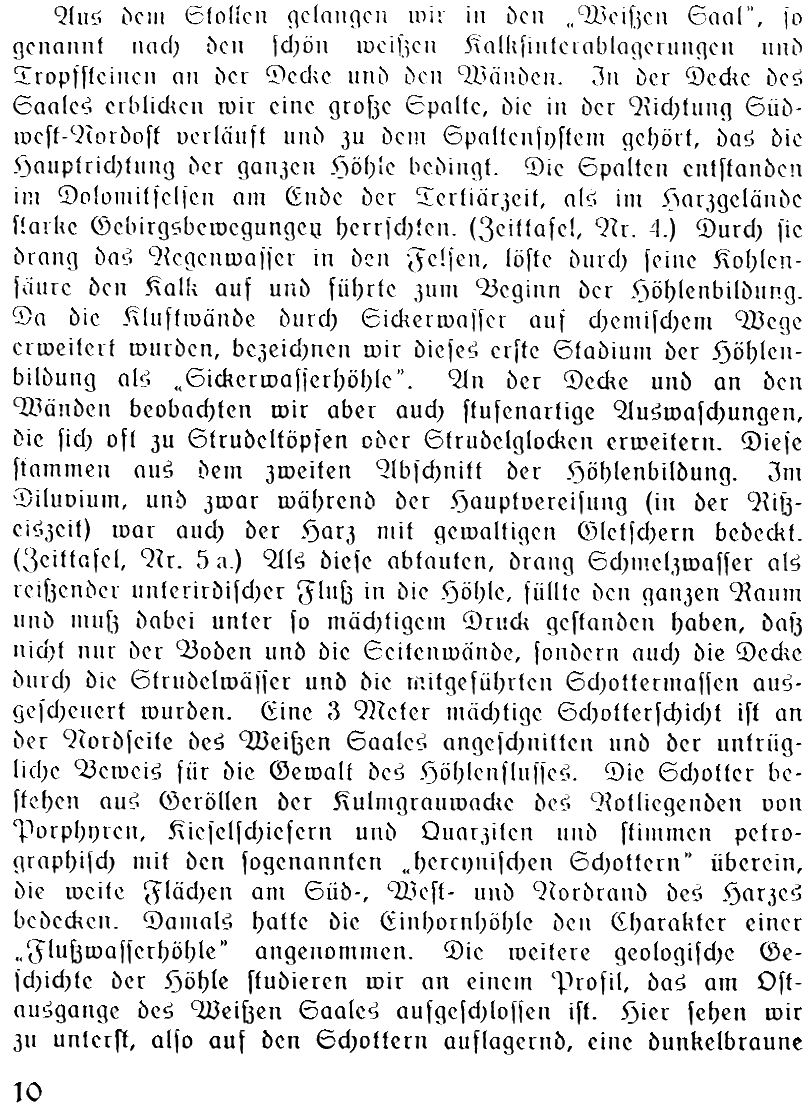 Aus dem Stollen gelangen wir in den „Weißen Saal”, so
genannt nach den schön weißen Kalksinterablagerungen und
Tropfsteinen an der Decke und den Wänden. In der Decke des
Saales erblicken wir eine große Spalte, die in der Richtung Süd-
west-Nordost verläuft und zu dem Spaltensystem gehört, das die
Hauptrichtung der ganzen Höhle bedingt. Die Spalten entstanden
im Dolomitfelsen am Ende der Tertiärzeit, als im Harzgelände
starke Gebirgsbewegungen herrschten. (Zeittafel, Nr. 4.) Durch sie
drang das Regenwasser in den Felsen, löste durch seine Kohlen-
säure den Kalk auf und führte zum Beginn der Höhlenbildung.
Da die Kluftwände durch Sickerwasser auf chemischem Wege
erweitert wurden, bezeichnen wir dieses erste Stadium der Höhlen-
bildung als „Sickerwasserhöhle”. An der Decke und an den
Wänden beobachten wir aber auch stufenartige Auswaschungen,
die sich oft zu Strudeltöpfen oder Strudelglocken erweitern. Diese
stammen aus dem zweiten Abschnitt der Höhlenbildung. Im
Diluvium, und zwar während der Hauptvereisung (in der Riß-
eiszeit) war auch der Harz mit gewaltigen Gletschern bedeckt.
(Zeittafel, Nr. 5 a.) Als diese abtauten, drang Schmelzwasser als
reißender unterirdischer Fluß in die Höhle, füllte den ganzen Raum
und muß dabei unter so mächtigem Druck gestanden haben, daß
nicht nur der Boden und die Seitenwände, sondern auch die Decke
durch die Strudelwässer und die mitgeführten Schottermassen aus-
gescheuert wurden. Eine 3 Meter mächtige Schotterschicht ist an
der Nordseite des Weißen Saales angeschnitten und der untrüg-
liche Beweis für die Gewalt des Höhlenflusses. Die Schotter be-
stehen aus Geröllen der Kulmgrauwacke des Rotliegenden von
Porphyren, Kieselschiefern und Quarziten und stimmen petro-
graphisch mit den sogenannten „hercynischen Schottern” überein,
die weite Flächen am Süd-, West- und Nordrand des Harzes
bedecken. Damals hatte die Einhornhöhle den Charakter einer
„Flußwasserhöhle” angenommen. Die weitere geologische Ge-
schichte der Höhle studieren wir an einem Profil, das am Ost-
ausgange des Weißen Saales aufgeschlossen ist. Hier sehen wir
zu unterst, also auf den Schottern auflagernd, eine dunkelbraune
10